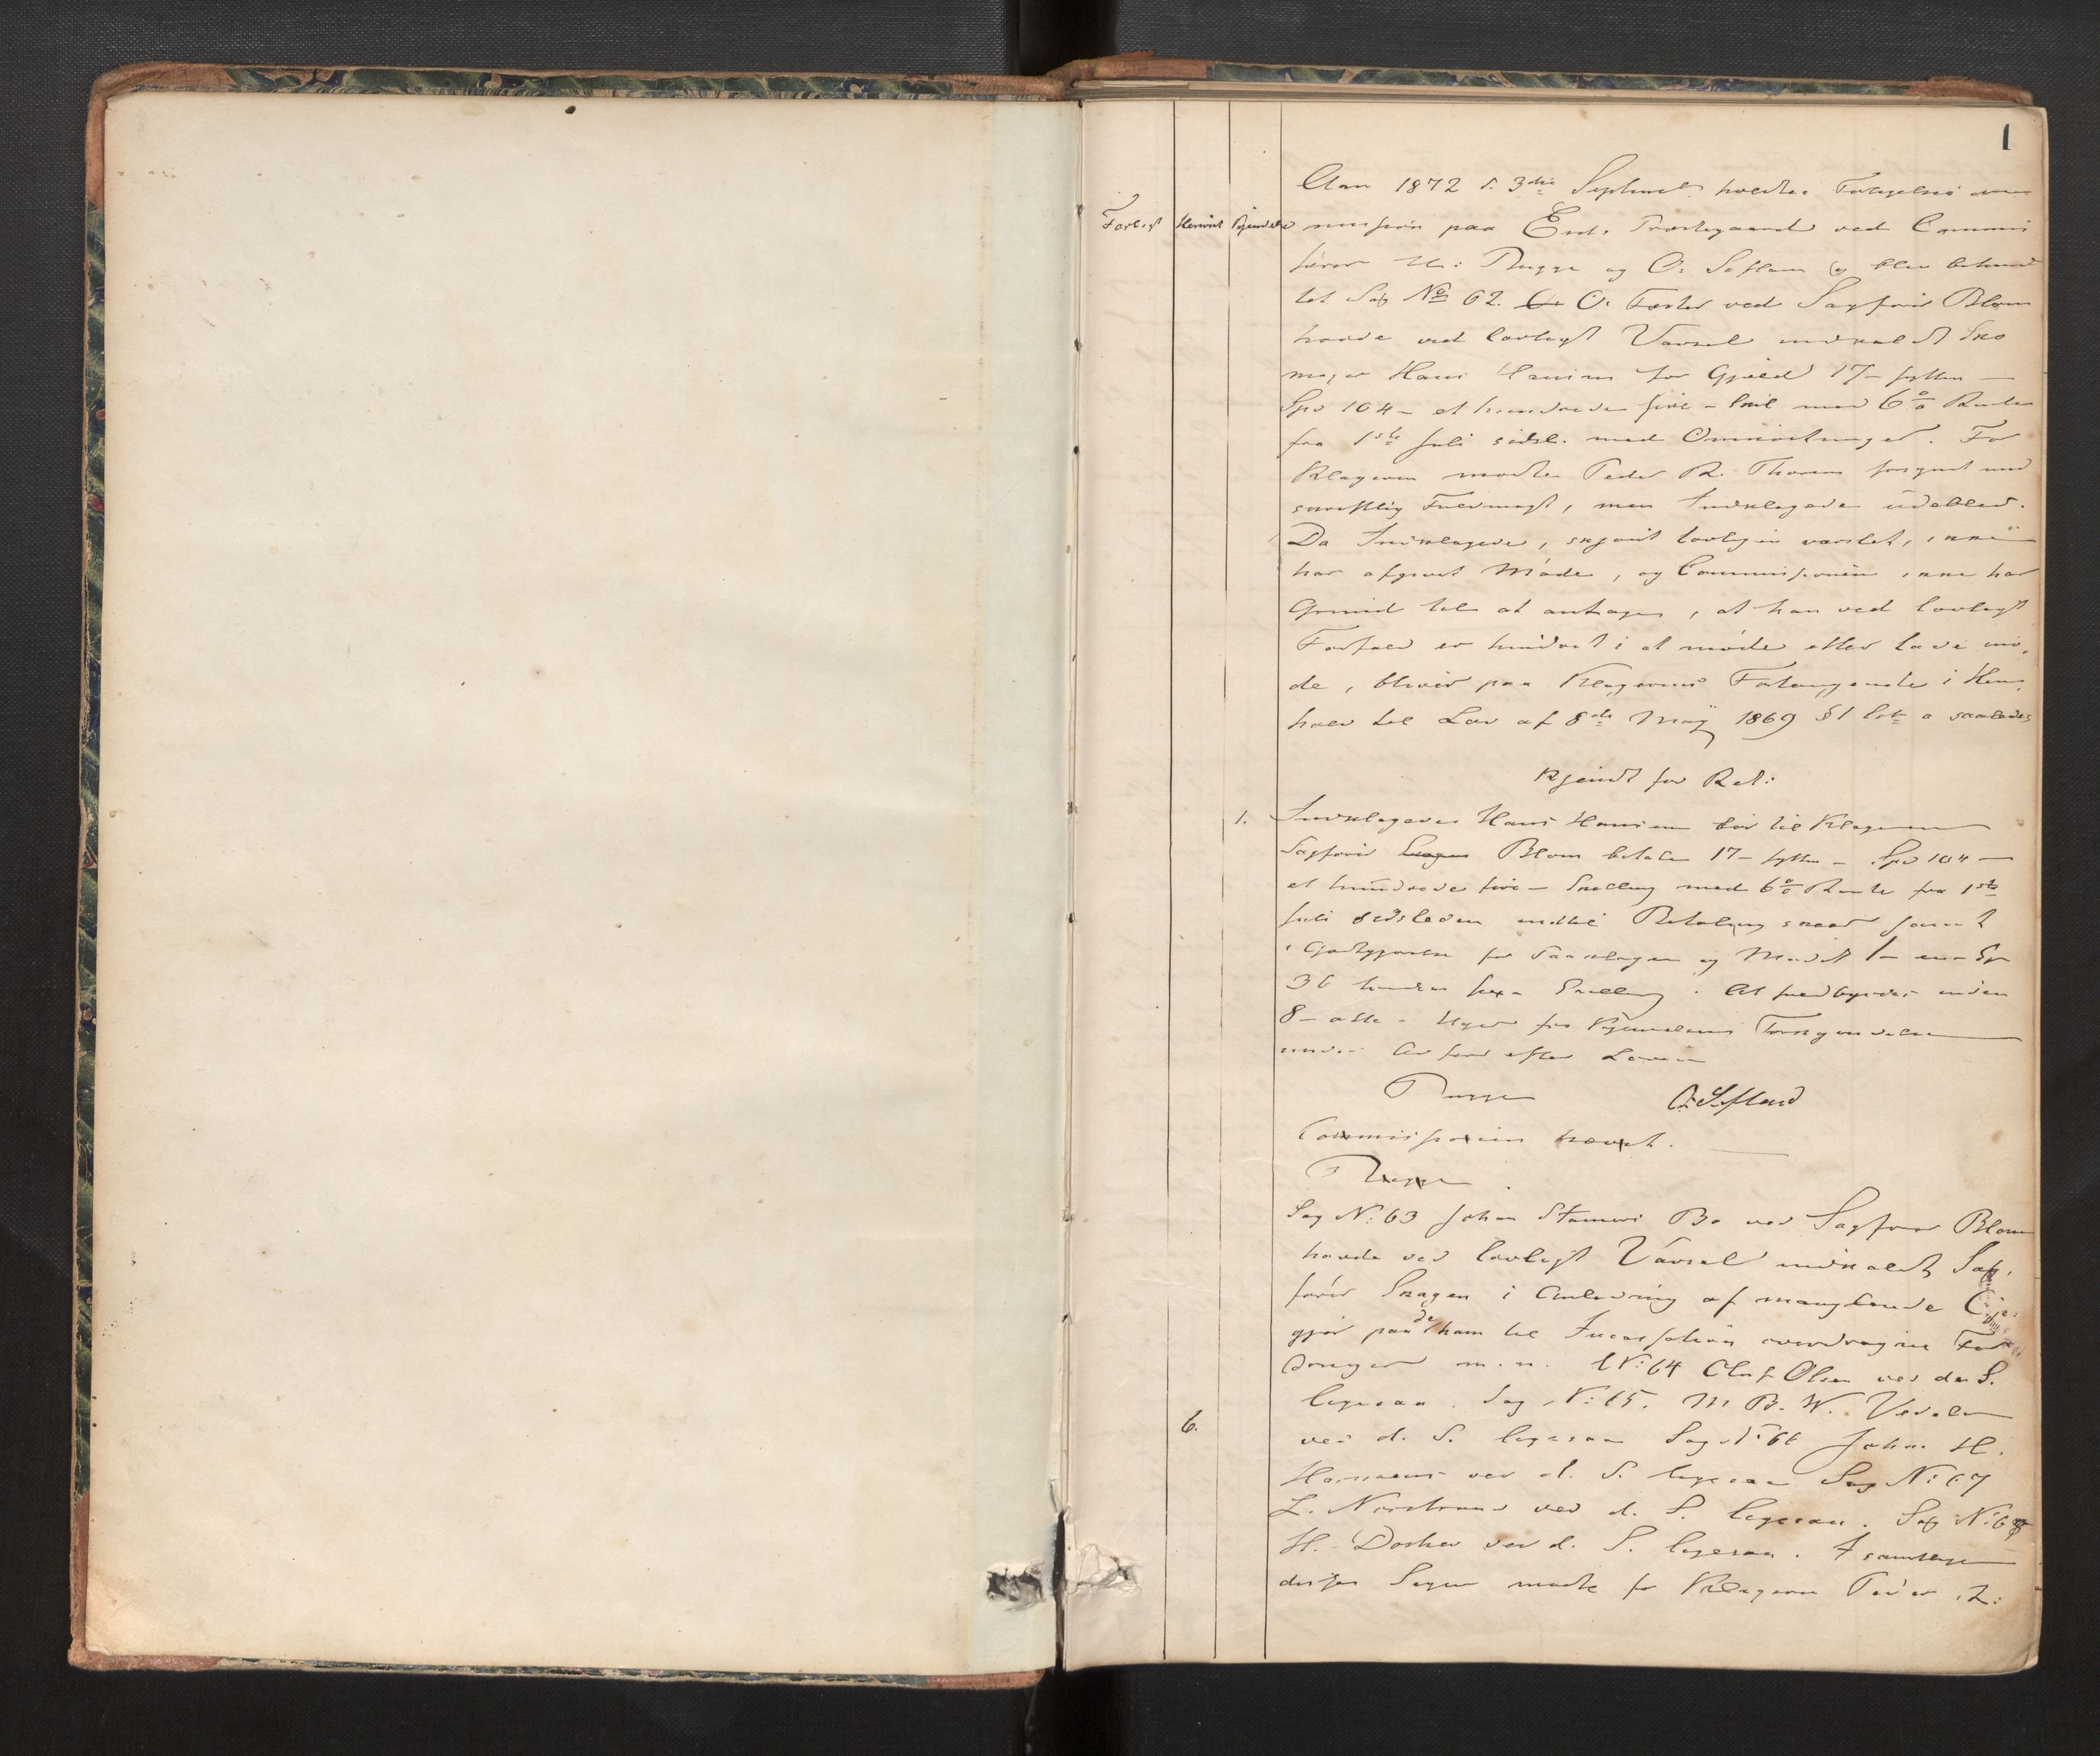 1
Forligt Henvist Kjendelse
Aar 1872 d. 3die Septembr. holdtes Forligelsescom
mission paa Eids Præstegaard ved Commis
særer H: Rugge og O. Sefland og blev behand
let Sag No 62. O. Forster ved Sagfører Blom
havde ved lovligt Varsel indkaldt Sko
mager Hans Hansen for Gjæld 17 – sytten –
Spd 104 – et hundrede fire – Skil med 6% Rente
fra 1ste Juli sidstl. med Omkostninger. For
Klageren mødte Peder R. Thoresen forsynet med
skriftlig Fuldmagt, men Indklagede udeblev.
Da Indklagede, skjønt lovligen varslet, ikke
har afgivet Møde, og Commissionen ikke har
Grund til at antage, at han ved lovligt
Forfald er hindret i at møde eller lade mø,
de, bliver paa Klagerens Forlangende i Hen,
hold til Lov af 8de Maj 1869 § 1 Litr a saaledes
Kjendt for Ret:
1. Indklagede Hans Hansen bør til Klageren
Sagfører Blom betale 17 – sytten – Spd 104 –
et hundrede fire – Skilling med 6% Rente fra 1ste
Juli sidstleden indtil Betaling skeer samt
i Godtgjørelse for Paaklagen og Mødet 1 – en – Sp
36 Skilling. At fuldbyrdes inden
8 – otte – Uger fra Kjendelsens Forkyndelse
under Adfærd efter Loven
Rugge O. Sefland
Commissionen hævet.
Rugge
Sag N: 63 Johan Bø ved Sagfører Blom
havde ved lovligt Varsel indkaldt Sag,
fører Skagen i Anledning af manglende Op:
gjør paa de ham til Incassation overdragne For
dringer m. m. N: 64 Oluf Olsen ved den S.
ligesaa. Sag N: 65. M B. W. Vedeler
6. ved d. S. ligesaa Sag N: 66 Johan H.
Hansens ved d. S. ligesaa Sag N: 67
L. Nordstrand ved d. S. ligesaa. Sag N: 68
H. Døsker ved d. S. ligesaa. I samtlige
disse Sager mødte for Klageren Peder R: